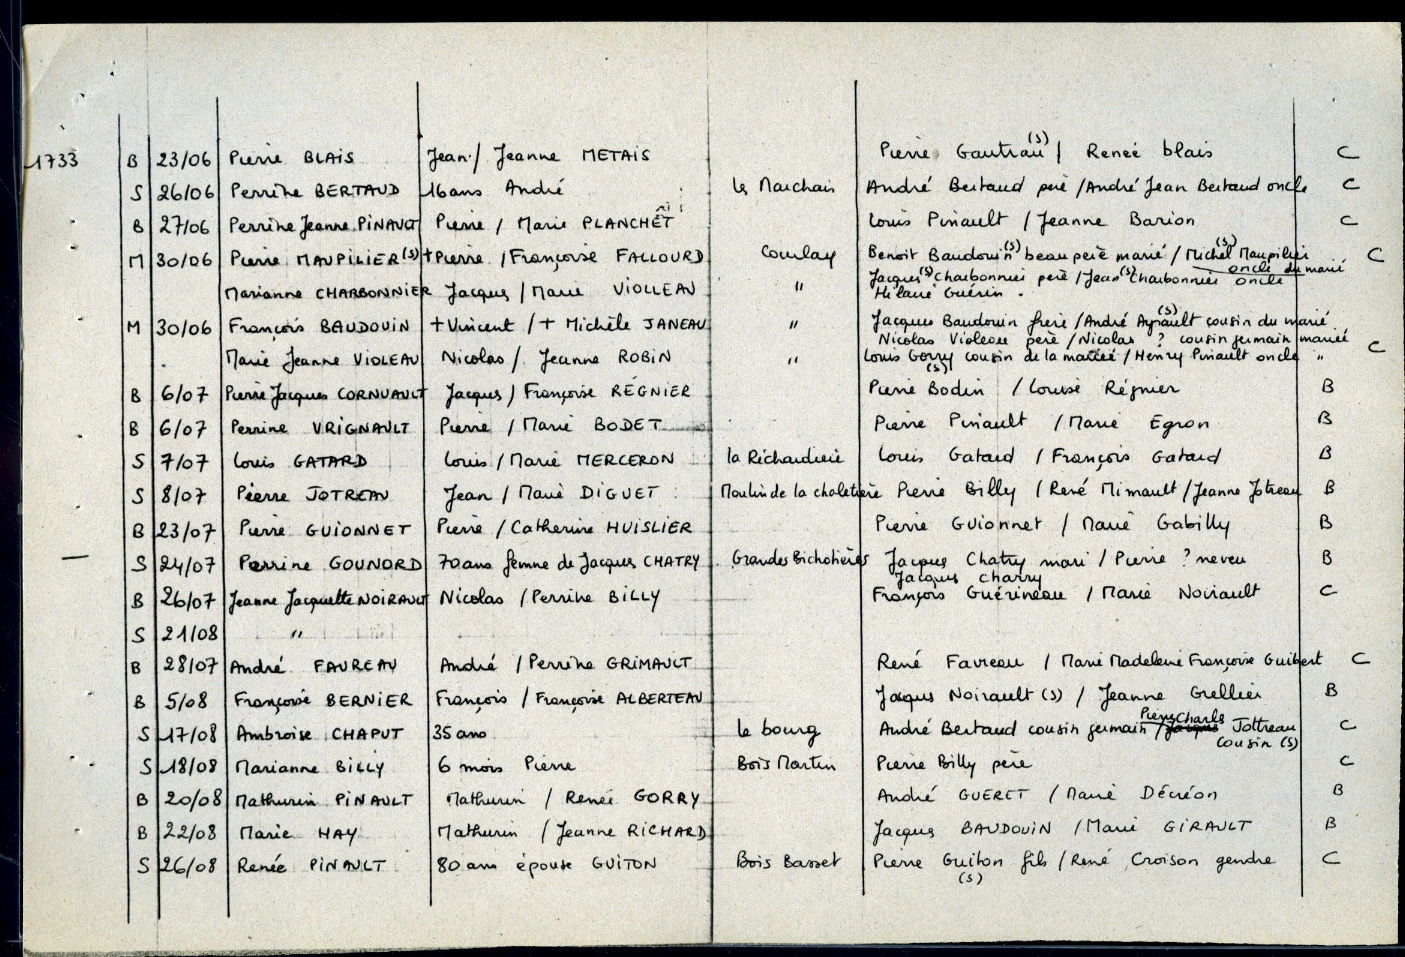 1733 B 23/06 Pierre BLAIS Jean / Jeanne METAIS Pierre Gautrau (s) / Renée blais C
S 26/06 Perrine BERTAUD 16 ans André les Marchais André Bertaud père / André Jean Bertaud oncle C
B 27/06 Perrine Jeanne PINAULT Pierre / Marie PLANCHET Louis Pinault / Jeanne Barion C
M 30/06 Pierre MAUPILIER (s) + Pierre / Françoise FALLOURD Courlay Benoit Baudouin (s) beau père marié / Michel (s) Maupilier oncle du marié C
Marianne CHARBONNIER Jacques / Marie VIOLLEAU " Jacques (s) Charbonnier père / Jean (s) Charbonnier oncle
Hilaire Guérin .
M 30/06 François BAUDOUIN + Vincent / + Michèle JANEAU " Jacques Baudouin frère / André Ayrault (s) cousin du marié
Nicolas Violeau père / Nicolas ? cousin germain mariée
Marie Jeanne VIOLEAU Nicolas / Jeanne ROBIN " Louis Gorry (s) cousin de la mariée / Henry Pinault oncle " C
B 6/07 Pierre Jacques CORNUAULT Jacques / Françoise RÉGNIER Pierre Bodin / Louise Régnier B
B 6/07 Perrine VRIGNAULT Pierre / Marie BODET Pierre Pinault / Marie Egron B
S 7/07 Louis GATARD Louis / Marie MERCERON la Richardière Louis Gatard / François Gatard B
S 8/07 Pierre JOTREAU Jean / Marie DIGUET Moulin de la chaletière Pierre Billy / René Mimault / Jeanne Jotreau B
B 23/07 Pierre GUIONNET Pierre / Catherine HUISLIER Pierre Guionnet / Marie Gabilly B
S 24/07 Perrine GOUNORD 70 ans femme de Jacques CHATRY Grandes Bichotières Jacques Chatry mari / Pierre ? neveu B
Jacques charry
B 26/07 Jeanne Jacquette NOIRAULT Nicolas / Perrine BILLY François Guérineau / Marie Noirault C
S 21/08 "
B 28/07 André FAVREAU André / Perrine GRIMAULT René Favreau / Marie Madeleine Françoise Guibert C
B 5/08 Françoise BERNIER François / Françoise ALBERTEAU Jacques Noirault (s) / Jeanne Grellier B
S 17/08 Ambroise CHAPUT 35 ans le bourg André Bertaud cousin germain / Jacques Pierre Charles Jottreau cousin (s) C
S 18/08 Marianne BILLY 6 mois Pierre Bois Martin Pierre Billy père C
B 20/08 Mathurin PINAULT Mathurin / Renée GORRY André GUERET / Marie Décréon B
B 22/08 Marie HAY Mathurin / Jeanne RICHARD Jacques BAUDOUIN / Marie GIRAULT B
S 26/08 Renée PINAULT 80 ans épouse GUITON Bois Basset Pierre Guiton (s) fils / René Croison gendre C